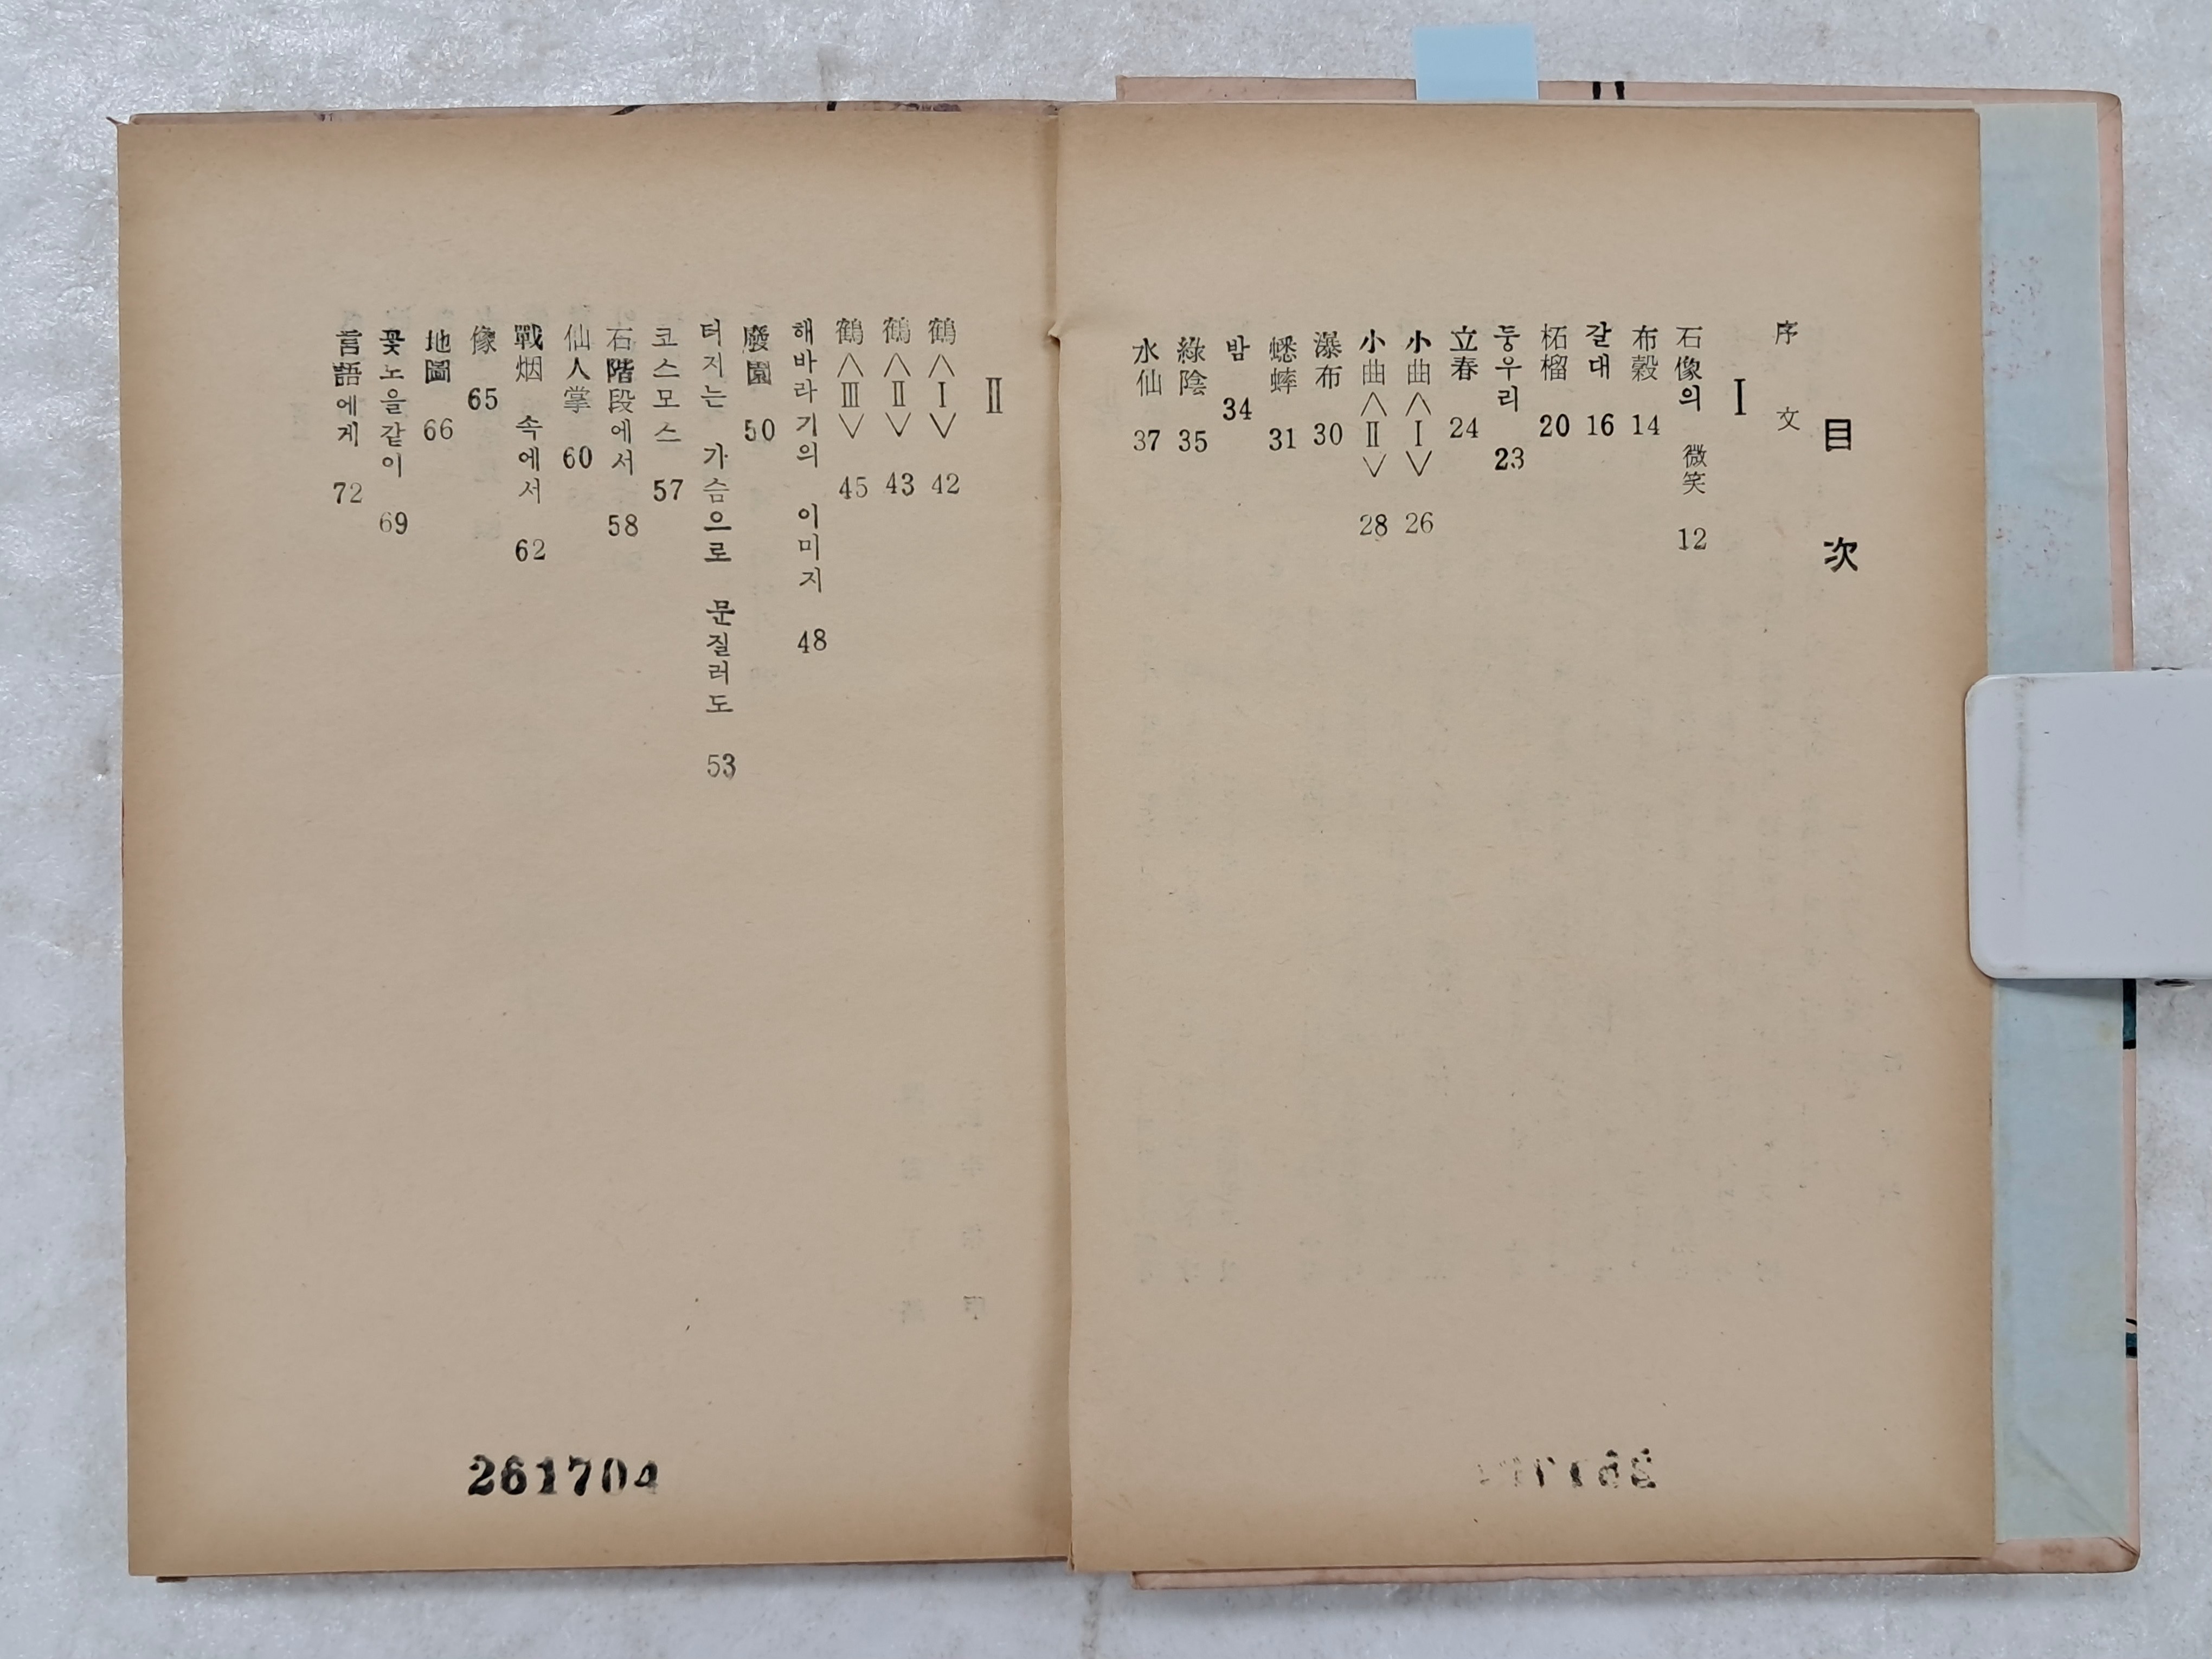 目次
序文
Ⅰ
石像의 微笑 12
布穀 14
갈대 16
柘榴 20
둥우리 23
立春 24
小曲<Ⅰ> 26
小曲<Ⅱ> 28
瀑布 30
蟋蟀 31
밤 34
綠陰 35
水仙 37
Ⅱ
鶴<Ⅰ> 42
鶴<Ⅱ> 43
鶴<Ⅲ> 45
해바라기의 이미지 48
廢園 50
터지는 가슴으로 문질러도 53
코스모스 57
石階段에서 58
仙人掌 60
戰烟 속에서 62
像 65
地圖 66
꽃노을같이 69
言語에게 72
261704